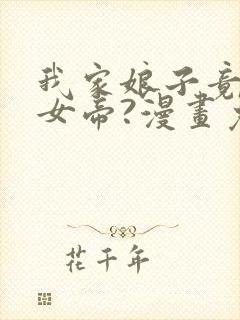 我家娘子竟
女帝?漫畫
花千年